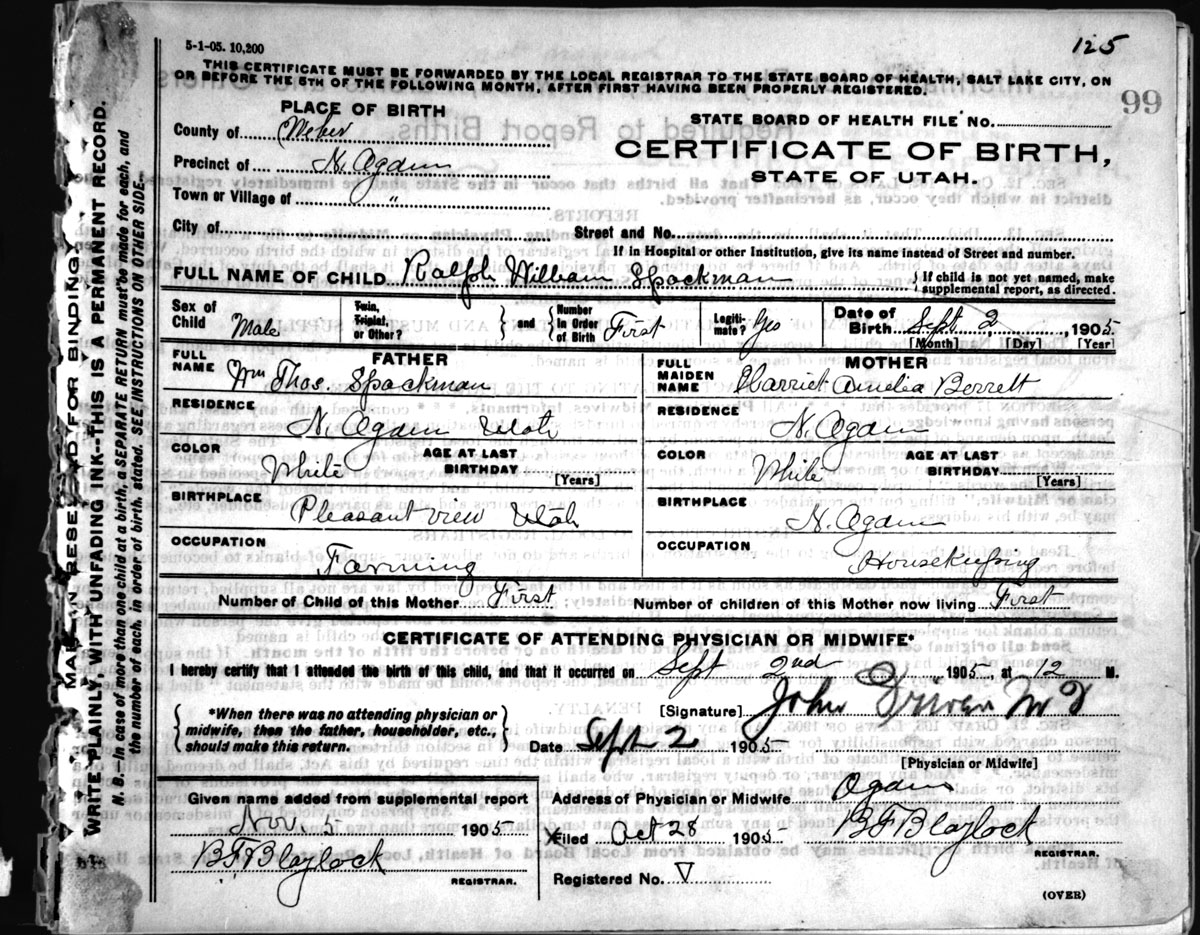 5-1-05. 10,200
125
THIS CERTIFICATE MUST BE FORWARDED BY THE LOCAL REGISTRAR TO THE STATE BOARD OF HEALTH, SALT LAKE CITY, ON
OR BEFORE THE 5TH OF THE FOLLOWING MONTH, AFTER FIRST HAVING BEEN PROPERLY REGISTERED.
99
PLACE OF BIRTH
STATE BOARD OF HEALTH FILE No.
County of Weber
CERTIFICATE OF BIRTH,
Precinct of N. Ogden
STATE OF UTAH.
Town or Village of "
City of
Street and No.
If in Hospital or other Institution, give its name instead of Street and number.
FULL NAME OF CHILD Ralph William Spackman
{ If child is not yet named, make
supplemental report, as directed.
Sex of Child Male
Twin, Triplet, or Other?
} and {
Number in Order of Birth First
Legitimate? Yes
Date of Birth Sept 2 1905
[Month] [Day] [Year]
FATHER
FULL NAME Wm Thos. Spackman
RESIDENCE
N. Ogden Utah
COLOR White
AGE AT LAST BIRTHDAY
[Years]
BIRTHPLACE
Pleasant view Utah
OCCUPATION
Farming
MOTHER
FULL MAIDEN NAME Harriet Amelia Berrett
RESIDENCE
N. Ogden
COLOR White
AGE AT LAST BIRTHDAY
[Years]
BIRTHPLACE
N. Ogden
OCCUPATION
Housekeeping
Number of Child of this Mother First
Number of children of this Mother now living First
CERTIFICATE OF ATTENDING PHYSICIAN OR MIDWIFE*
I hereby certify that I attended the birth of this child, and that it occurred on Sept 2nd 1905, at 12 M.
{ *When there was no attending physician or
midwife, then the father, householder, etc.,
should make this return. }
[Signature] John Driver M D
Date Sept 2 1905
[Physician or Midwife]
Given name added from supplemental report
Nov. 5 1905
B F Blaylock
REGISTRAR.
Address of Physician or Midwife Ogden
Filed Oct 28 1905 B F Blaylock
REGISTRAR.
Registered No.
(OVER)
MARGIN RESERVED FOR BINDING
WRITE PLAINLY, WITH UNFADING INK—THIS IS A PERMANENT RECORD.
N. B.—In case of more than one child at a birth, a SEPARATE RETURN must be made for each, and
the number of each, in order of birth, stated. SEE INSTRUCTIONS ON OTHER SIDE—